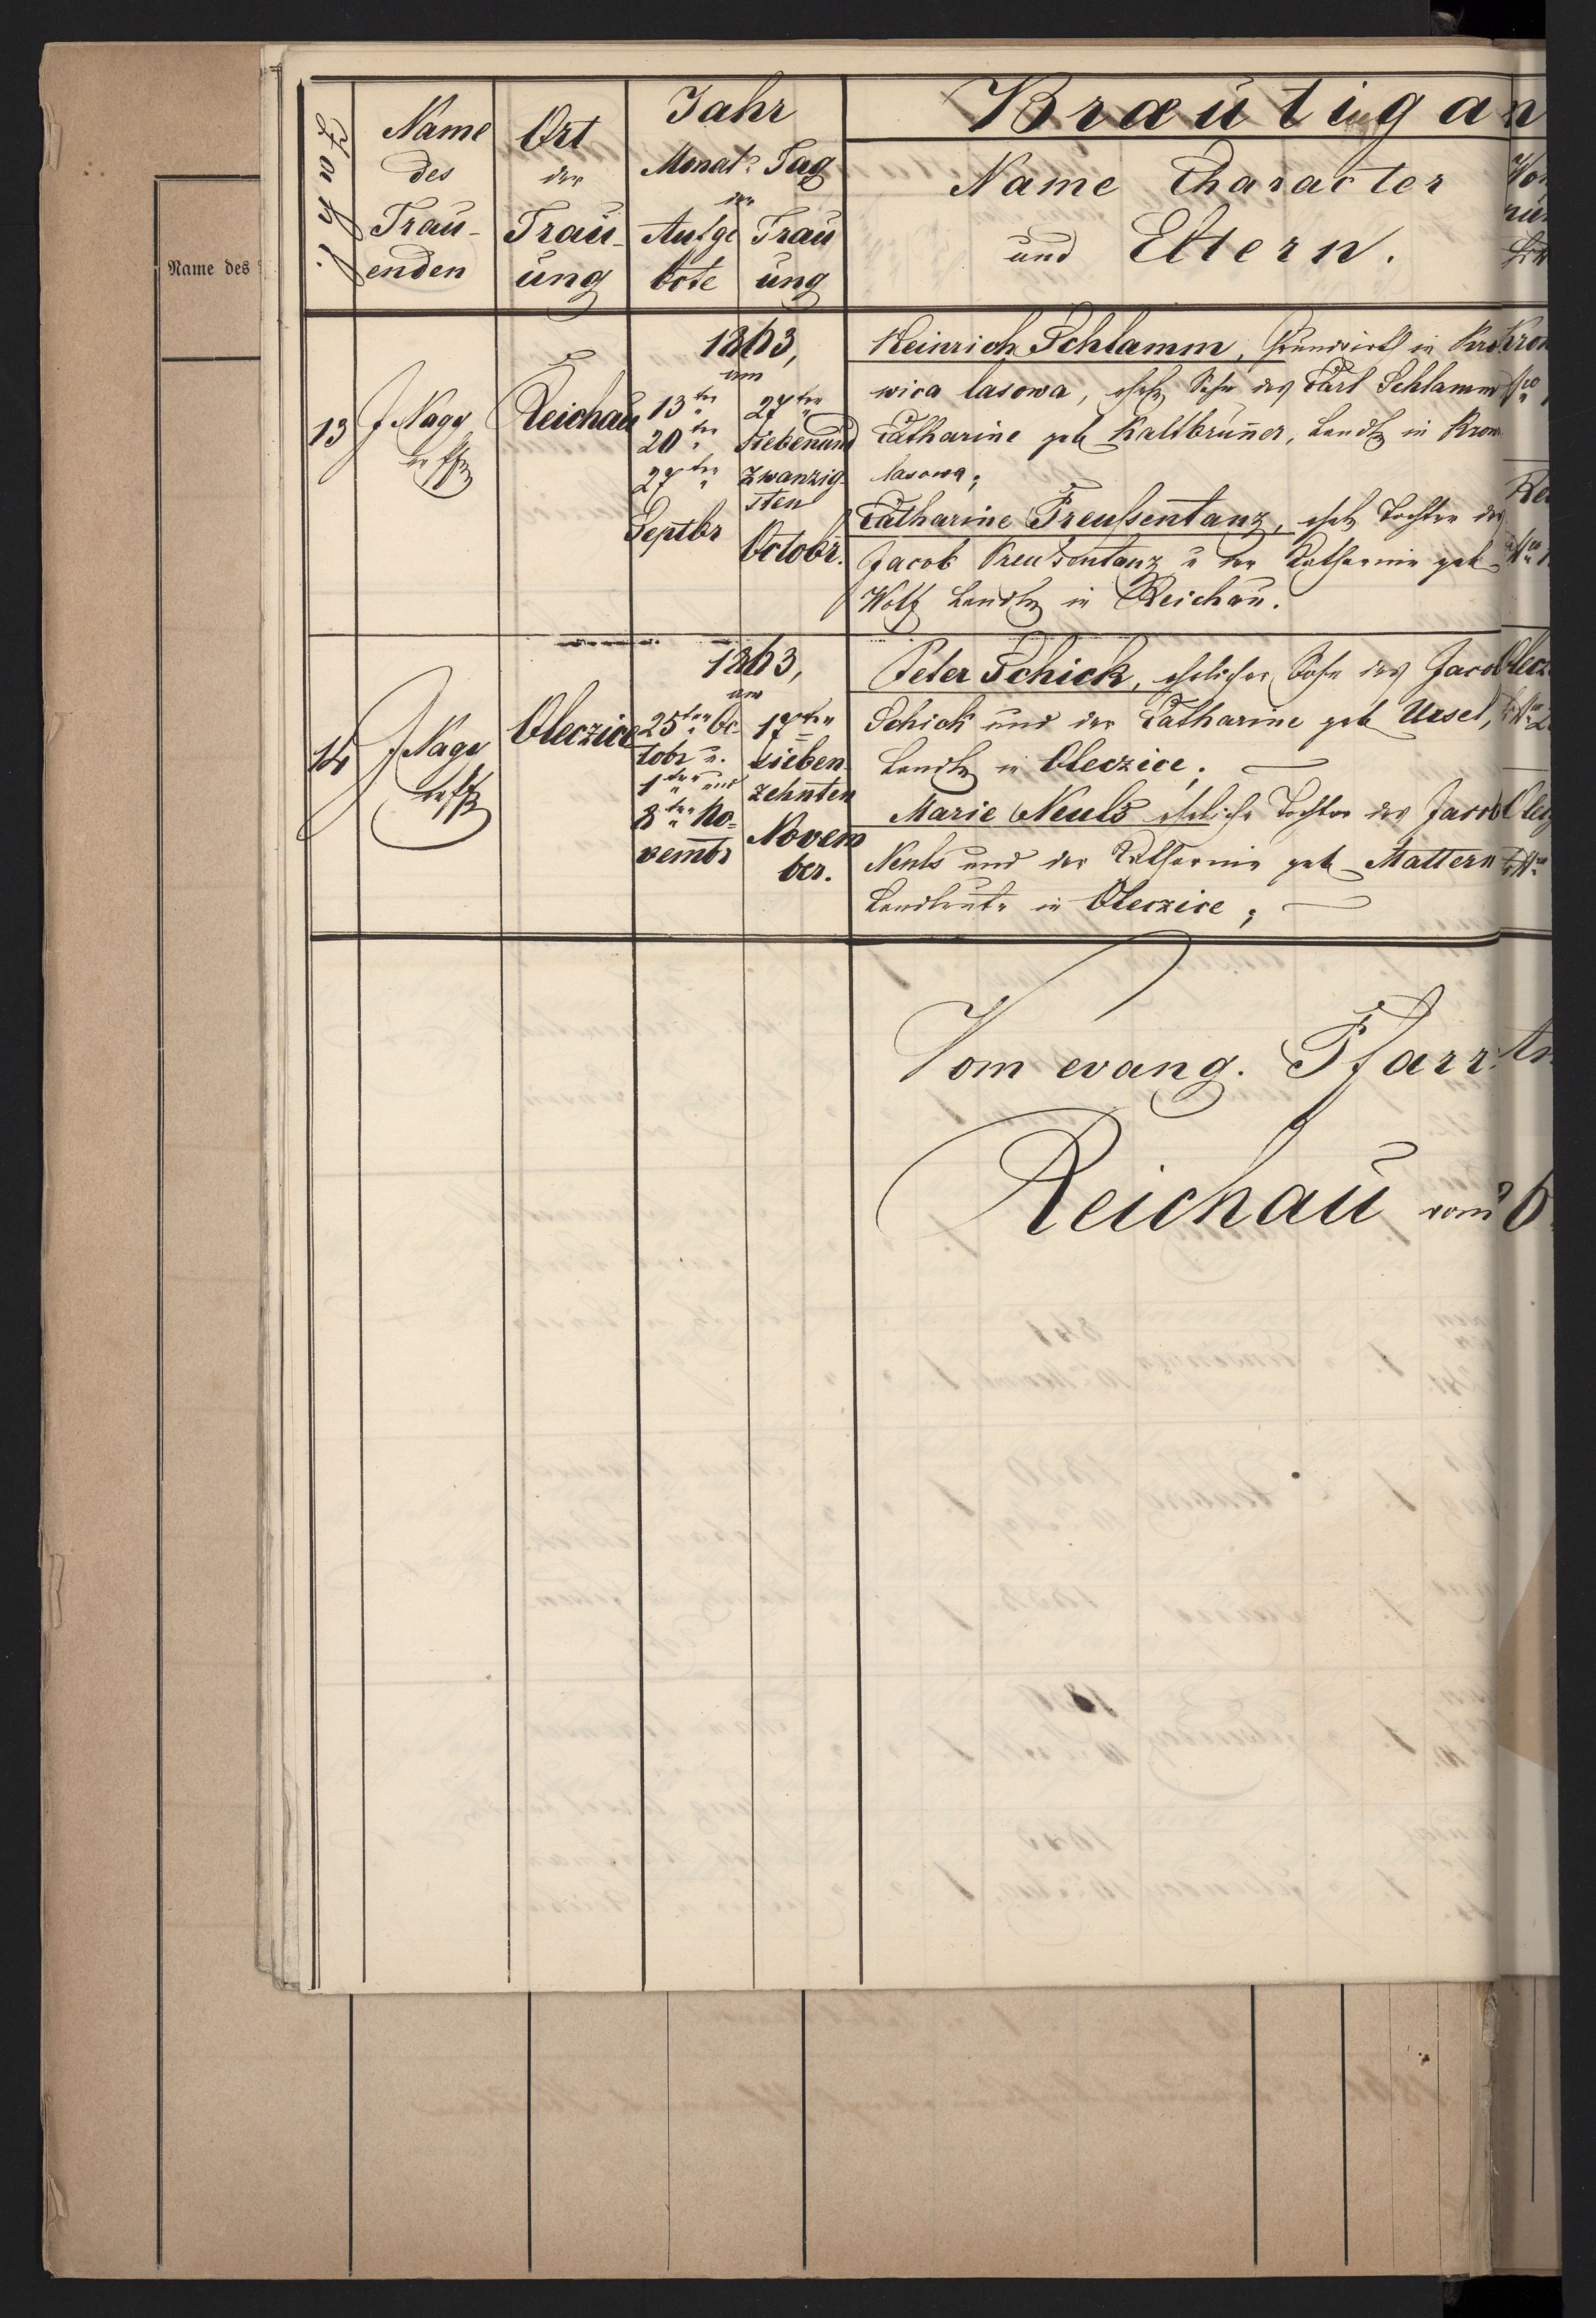 Name des
Fortl.
Name des Trau-enden
Ort der Trauung
Jahr
Monat & Tag
der
Aufgebote
Trauung
Bräutigam
Name Character
und Eltern.
13
J Nagy
Reichau
1863,
am
13ten
20ten
27ten
Septbr
27ten
Siebenund
zwanzig-
sten
Octobr.
Heinrich Schlamm, Grundwirth in Kro
wica lasowa, ehel. Sohn des Carl Schlamm
Catharine geb Kaltbrunner, Landl. in Krow
lasowa;
Catharine Preußentanz, ehel. Tochter des
Jacob Preußentanz u der Catharine geb
Wolf Landl. in Reichau.
14
J Nagy
Oleczice
1863,
am
25ten Oc-
tobr u.
1ten und
8ten No-
vembr
17ten
sieben-
zehnten
Novem
ber.
Peter Schick, ehelicher Sohn des Jacob
Schick und der Catharine geb Ursel,
Landl. in Oleczice;
Marie Neuls eheliche Tochter des Jacob
Neuls und der Catharine geb Mattern
Landleute in Oleczice;
Vom evang. Pfarr
Reichau vom 6